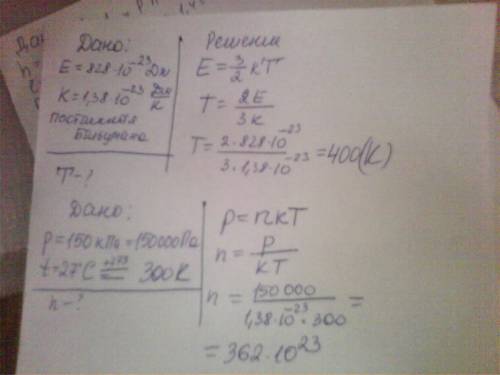 Дано:
E = 828·10⁻²³ Дж
K = 1,38·10⁻²³ Дж/К
постоянная
Больцмана
T - ?
Решение
E = 3/2 kT
T = 2E/3k
T = 2·828·10⁻²³/3·1,38·10⁻²³ = 400(K)
Дано:
p = 150 кПа = 150000 Па
t = 27°C +273 = 300K
n - ?
p = nkT
n = p/kT
n = 150 000/1,38·10⁻²³·300 =
= 362·10²³